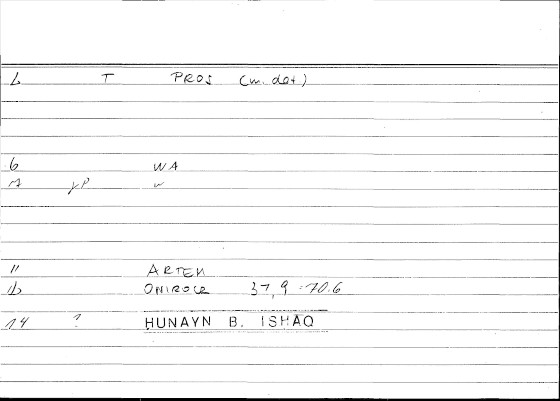 6 T PROS (w. dat)
6 WA
11 γρ w
11 ARTEM
12 ONIROCR 37,9 = 70.6
14 ? HUNAYN B. ISHAQ